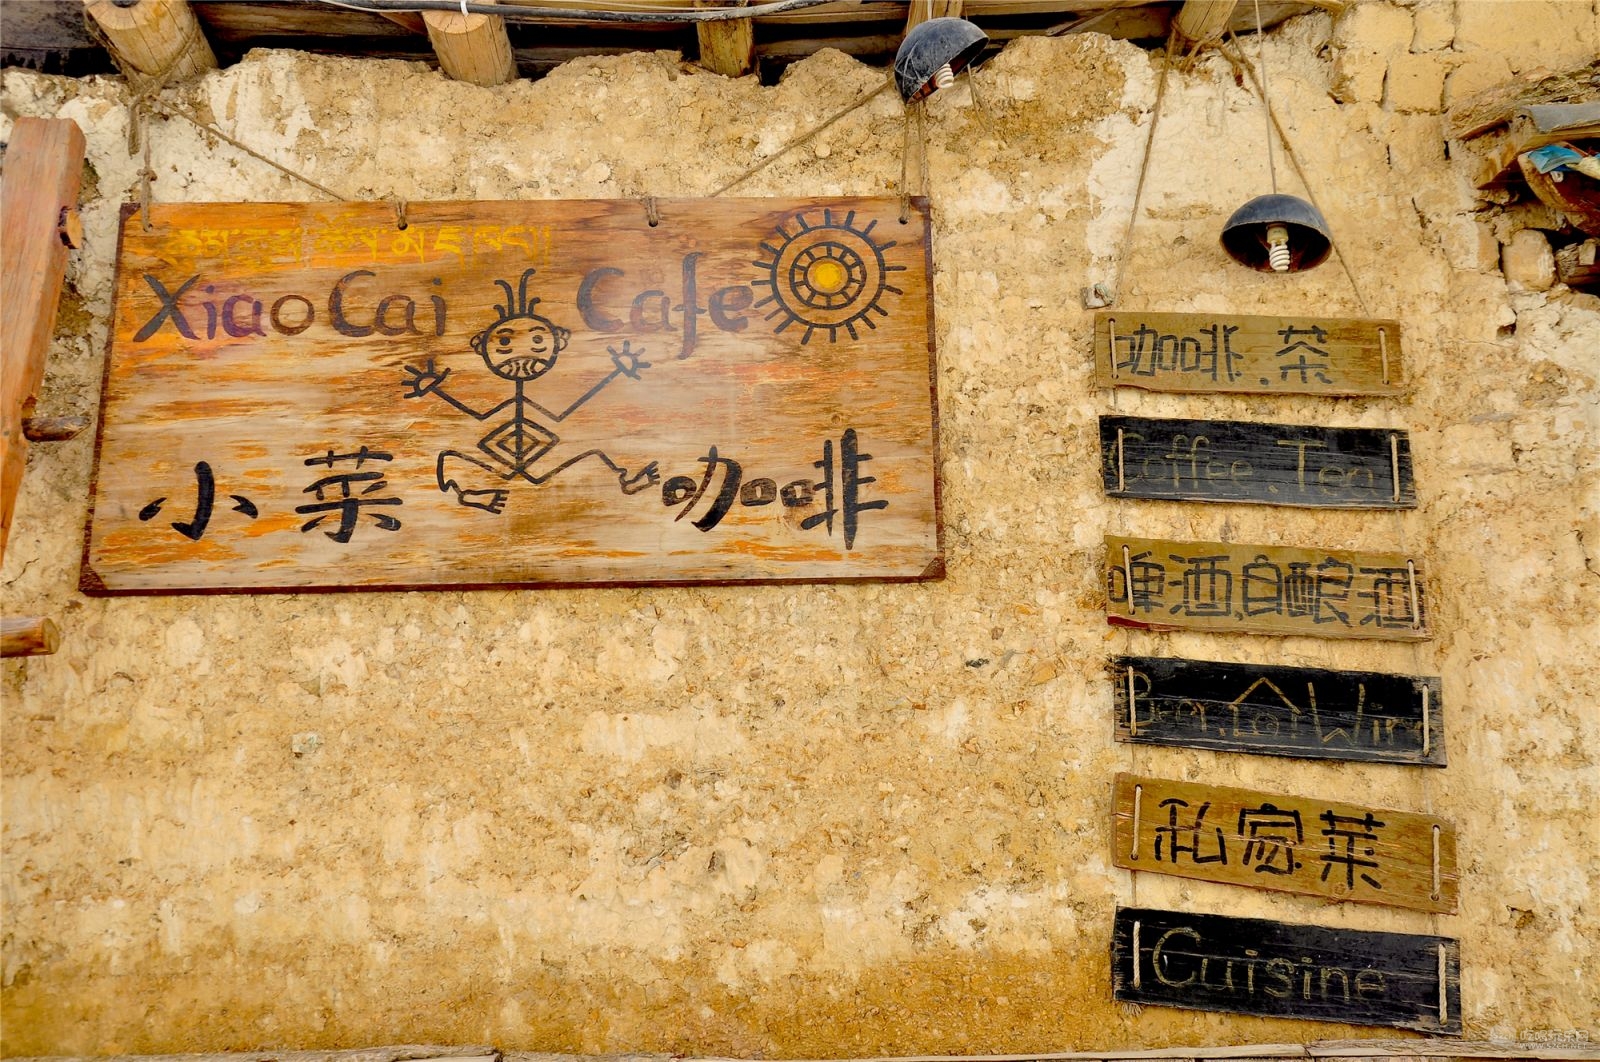 Xiao Cai Cafe
小菜 咖啡
咖啡.茶
Coffee.Tea
啤酒.自酿酒
私家菜
Cuisine